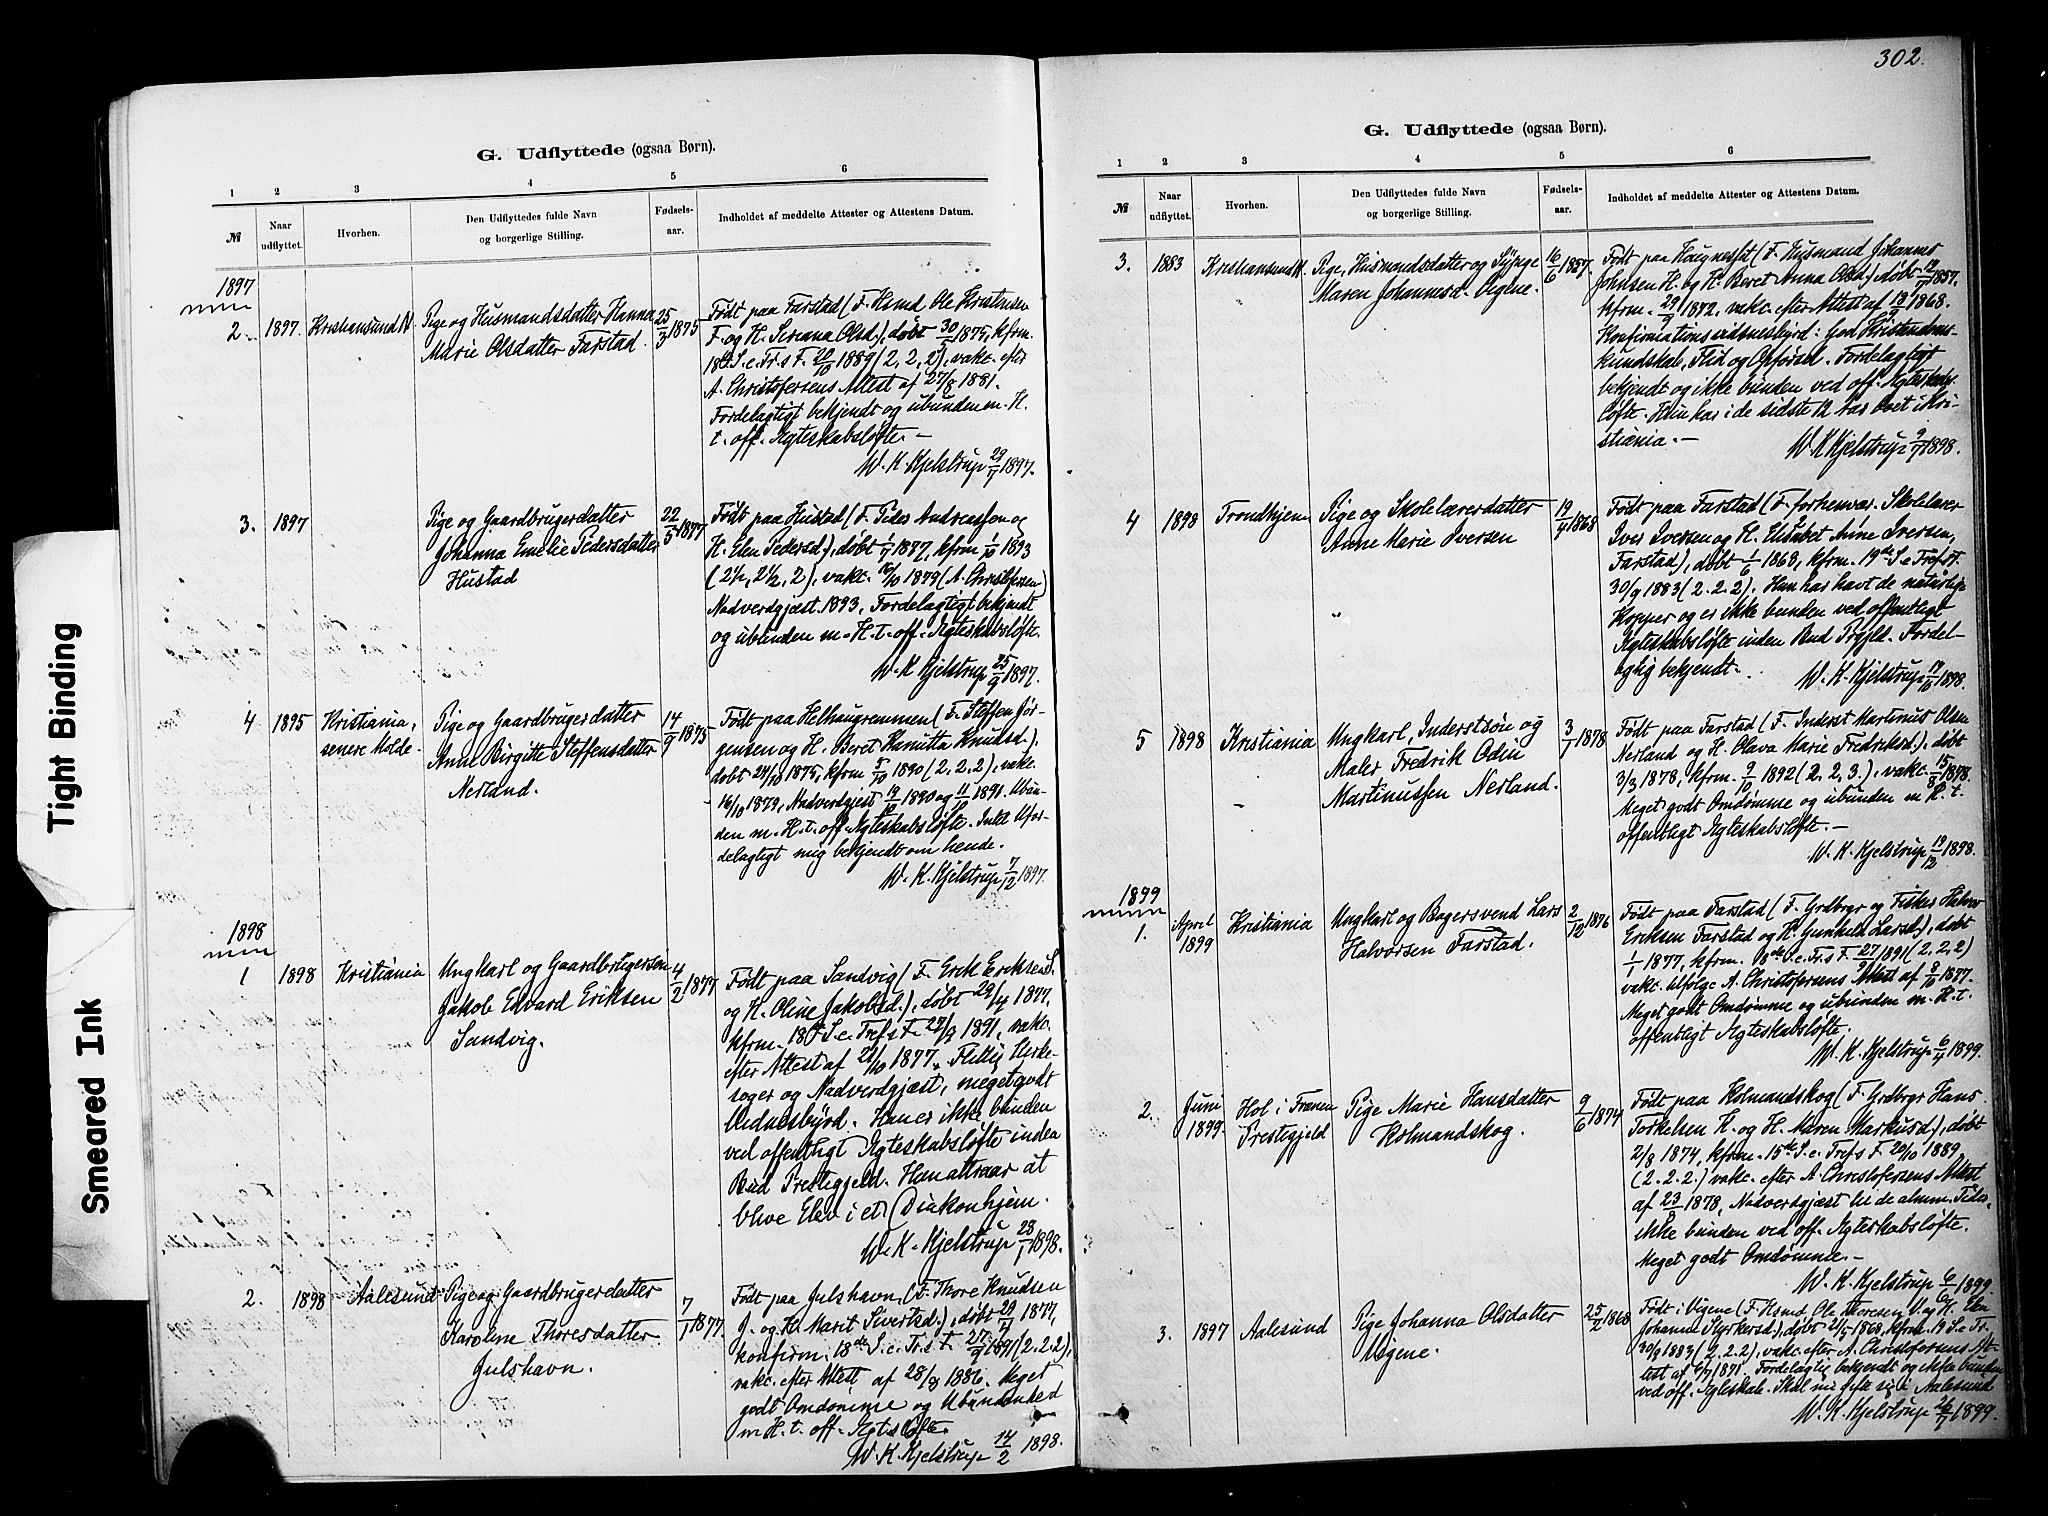 302.
Tight Binding
Smeared Ink
G. Udflyttede (ogsaa Børn).
1 2 3 4 5 6
№ Naar udflyttet. Hvorhen. Den Udflyttedes fulde Navn og borgerlige Stilling. Fødsels-aar. Indholdet af meddelte Attester og Attestens Datum.
1897
2. 1897. Kristiansund N Pige og Husmandsdatter Hanna Marie Olsdatter Farstad. 25/3 1875
Født paa Farstad (F. Hsmd Ole Kristensen
F. og H. Seriana Olsd.), døbt 30/5 1875, kfrm.
18 S. e. Tr.s F. 20/10 1889 (2, 2, 2), vakc. efter
A. Christofersens Attest af 27/8 1881.
Fordelagtigt bekjendt og ubunden m. H.
t. off. Ægteskabsløfte. —
W. K. Kjelstrup 29/7 1897.
3. 1897 Pige og Gaardbrugerdatter Johanna Emelie Pedersdatter Hustad 22/5 1877
Født paa Hustad (F. Peder Andreassen og
H. Elen Pedersd.), døbt 1/7 1877, kfrm 1/10 1893
(2½, 2½, 2), vakc. 16/10 1879 (A. Christofersen)
Nadverdgjæst 1893, Fordelagtigt bekjendt
og ubunden m. H. t. off. Ægteskabsløfte.
W. K Kjelstrup 25/9 1897.
4 1895 Kristiania, senere Molde. Pige og Gaardbrugerdatter Anne Birgitte Steffensdatter Nerland. 14/9 1875
Født paa Helhaugremmen (F. Steffen Jør-
gensen og H. Beret Kanutta Knudsd.).
døbt 24/10 1875, kfrm 5/10 1890 (2. 2. 2), vakc.
16/10 1879, Nadverdgjæst 19/10 1890 og 11/10 1891. Ubun-
den m. H. t. off. Ægteskabsløfte. Intet Ufor-
delagtigt mig bekjendt om hende.
W. K. Kjelstrup 7/12 1897.
1898
1 1898 Kristiania Ungkarl og Gaardbrugersøn Jakob Edvard Eriksen Sandvig. 4/2 1877
Født paa Sandvig (F. Erik Eriksen S.
og H. Oline Jakobsd.), døbt 29/4 1877,
kfrm. 18 S. e. Tref.s F. 27/9 1891, vakc.
efter Attest af 21/10 1877. Flittig Kirke-
søger og Nadverdgjæst, meget godt
Vidnesbyrd. Han er ikke bunden
ved offentligt Ægteskabsløfte inden
Bud Prestegjeld. Han attraar at
blive Elev i et Diakonhjem.
W. K. Kjelstrup 28/1 1898.
2. 1898 Aalesund Pige og Gaardbrugerdatter Karoline Thoresdatter Julshavn. 7/1 1877
Født paa Julshavn (F. Thore Knudsen
J. og H. Marit Sivertsd.), døbt 29/4 1877,
konfirm. 18de S. e. Tr.s F. 27/9 1891 (2. 2. 2),
vakc. efter Attest af 28/8 1886. Meget
godt Omdømme og Ubundenhed
m H. t. off. Ægtsløfte.
W. K. Kjelstrup 14/2 1898.
G. Udflyttede (ogsaa Børn).
1 2 3 4 5 6
№ Naar udflyttet. Hvorhen. Den Udflyttedes fulde Navn og borgerlige Stilling. Fødsels-aar. Indholdet af meddelte Attester og Attestens Datum.
3. 1883 Kristiansund N. Pige, Husmandsdatter og Sypige Maren Johannesd. Vigene. 16/6 1857.
Født paa (F. Husmand Johannes
Johnsen H. og H. Beret Anna Olsd.) døbt 12/7 1857,
kfrm. 29/9 1872, vakc. efter Attest af 18/9 1868.
Konfirmationsvidnesbyrd: God Kristendoms-
kundskab, Flid og Opførsel. Fordelagtigt
bekjendt og ikke bunden ved off. Ægteskabs-
løfte. Hun har i de sidste 12 Aar boet i Kri-
stiania. —
W. K Kjelstrup 9/7 1898.
4 1898 Trondhjem Pige og Skolelærerdatter Anne Marie Iversen 19/4 1868
Født paa Farstad (F. forhenvær. Skolelærer
Iver Iversen og H. Elisabet Anne Iversen,
Farstad), døbt 1/6 1868, kfrm. 19de S. e Tref.s F.
30/9 1883 (2. 2. 2). Hun har havt de naturlige
Kopper og er ikke bunden ved offentligt
Ægteskabsløfte inden Bud Prgjld. Fordel-
agtig bekjendt.
W. K. Kjelstrup 17/10 1898.
5 1898 Kristiania Ungkarl, Inderstsøn og Maler Fredrik Odin Martinussen Nerland. 3/1 1878
Født paa Farstad (F. Inderst Martinus Olsen
Nerland og H. Olava Marie Fredriksd.), døbt
3/3 1878, kfrm. 9/10 1892 (2. 2, 3.), vakc. 15/8 1878.
Meget godt Omdømme og ubunden m H. t.
offentligt Ægteskabsløfte. —
W. K. Kjelstrup 19/12 1898.
1899
1. April 1899 Kristiania Ungkarl og Bagersvend Lars Halvorsen Farstad. 2/12 1876
Født paa Farstad (F. Grdbrgr og Fisker Halvor
Eriksen Farstad og H. Gunhild Larsd.), døbt
1/1 1877, kfrm. 18de S. e. Tr.s F. 27/9 1891 (2. 2. 2)
vakc. tilfølge A. Christofersens Attest af 8/10 1877.
Meget godt Omdømme og ubunden m. H. t.
offentligt Ægteskabsløfte.
W. K. Kjelstrup 6/4 1899.
2. Juni 1899. Hol i Frænen Prestegjeld Pige Marie Hansdatter Kolmandskog. 9/6 1874
Født paa Kolmandskog (F. Grdbrgr Hans
Torkelsen K. og H. Maren Markusd.), døbt
2/8 1874, kfrm. 15de S. e. Tref.s F. 20/10 1889
(2. 2. 2.) vakc. efter A. Christofersens Attest
af 23/8 1878, Nadverdgjæst til de almm. Tider,
ikke bunden ved off. Ægteskabsløfte.
Meget godt Omdømme. —
W. K. Kjelstrup 6/6 1899.
3. 1897 Aalesund Pige Johanna Olsdatter Vigene. 25/2 1868
Født i Vigene (F. Hsmd. Ole Thoresen V. og H. Elen
Johanne Styrkersd.), døbt 21/5 1868, kfrm. 19 S. e Tr.
30/9 1883 (2. 2. 2), vakc. efter A. Christofersens At-
test af 6/9 1871. Fordelagtig bekjendt og ikke bunden
ved off. Ægteskabs. Skal nu gifte sig i Aalesund
W. K. Kjelstrup 26/7 1899.